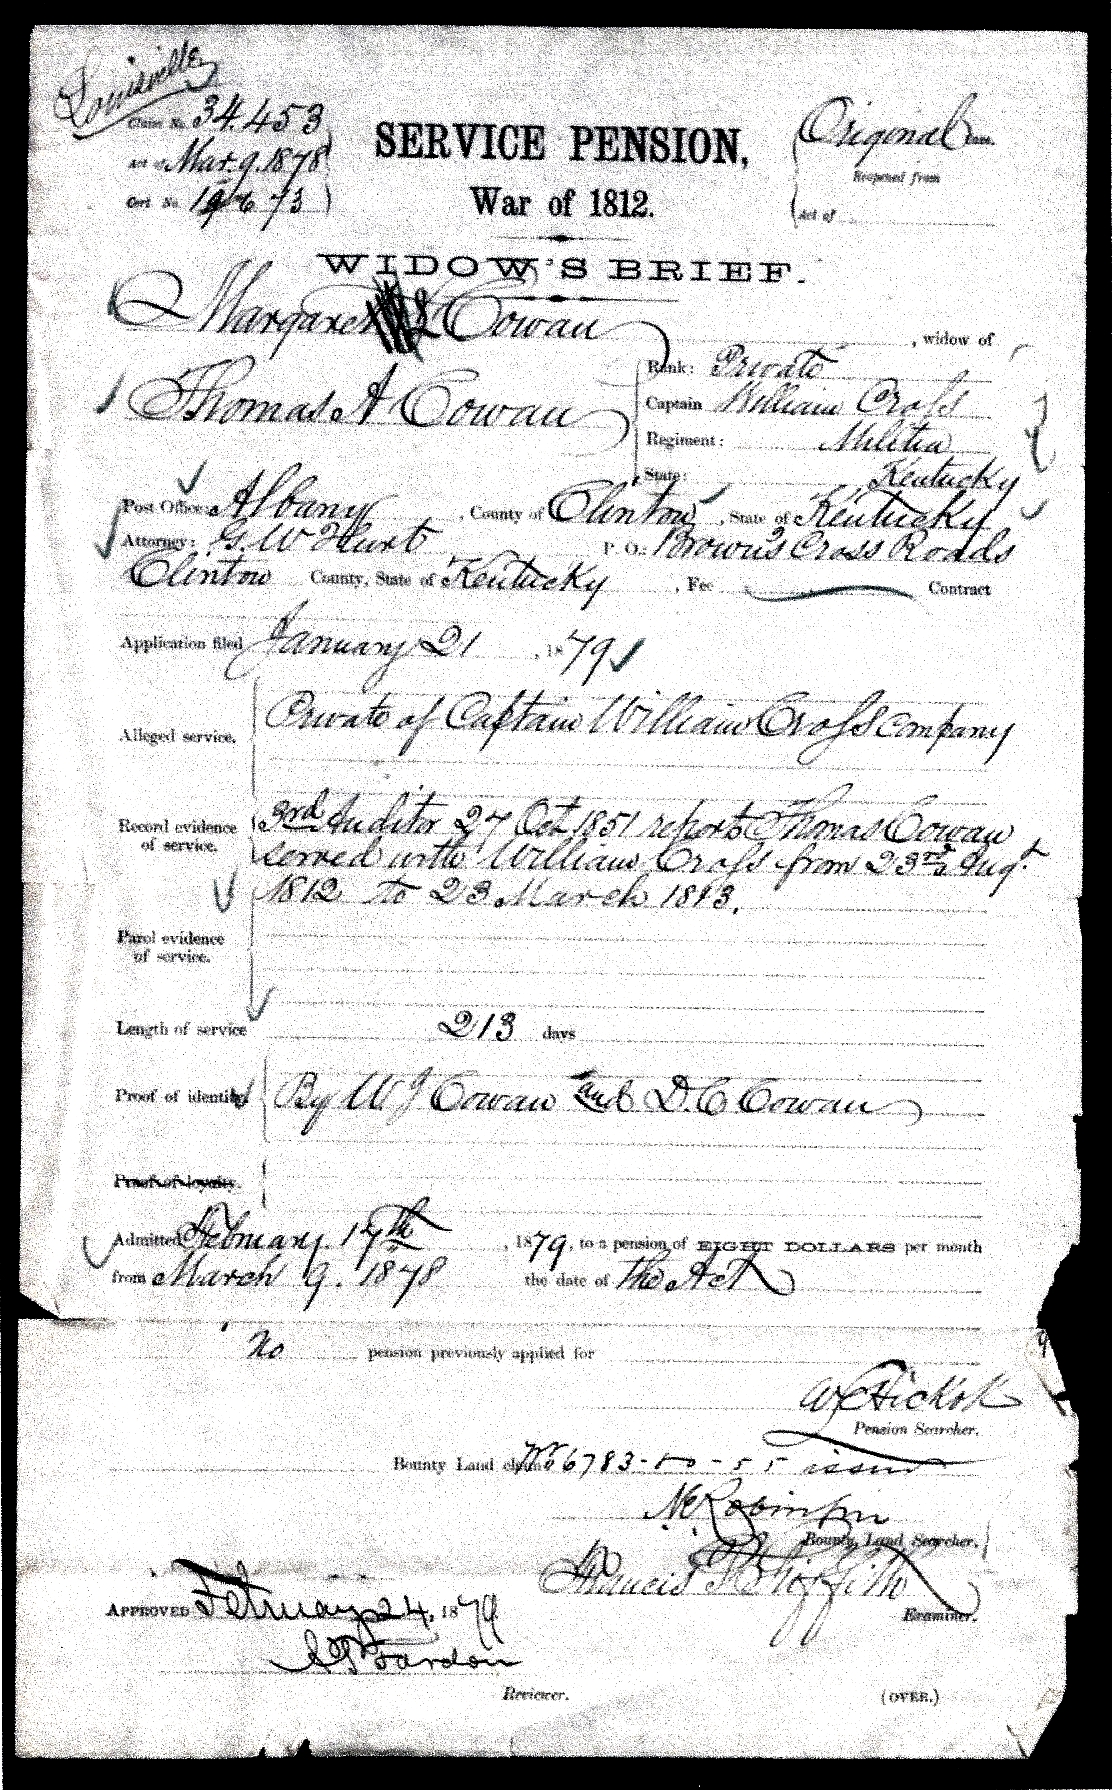 Louisville
Claim No. 34.453
Act of Mar. 9. 1878
Cert No. 19673
SERVICE PENSION,
War of 1812.
Original
Reopened from
Act of
WIDOW'S BRIEF.
Margaret L Cowan, widow of
Thomas A Cowan
Rank: Private
Captain William Cross
Regiment: Militia
State: Kentucky
Post Office: Albany, County of Clinton, State of Kentucky
Attorney: G. W Hurt P. O.: Brown's Cross Roads
Clinton County, State of Kentucky, Fee Contract
Application filed January 21, 1879
Alleged service. Private of Captain William Cross Company
Record evidence of service. 3rd Auditor 27 Oct. 1851 reports Thomas Cowan
served with William Cross from 23rd Augt.
1812 to 23 March 1813.
Parol evidence of service.
Length of service 213 days
Proof of identity By W J Cowan and D. C Cowan
Proof of loyalty.
Admitted February 17th, 1879, to a pension of EIGHT DOLLARS per month
from March 9. 1878 the date of the Act
No pension previously applied for
W C Hickok
Pension Searcher.
Bounty Land claim 6783-50-55 issued
Robinson
Bounty Land Searcher.
Francis Griffith
Examiner.
APPROVED February 24, 1879
Reviewer.
(OVER.)